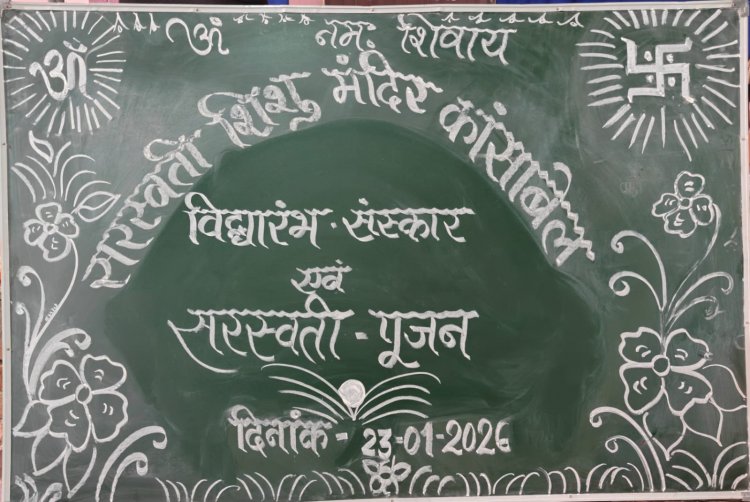 ॐ
ॐ नमः शिवाय
सरस्वती शिशु मंदिर कांसाबेल
विद्यारंभ - संस्कार
एवं
सरस्वती - पूजन
दिनांक - 23-01-2026